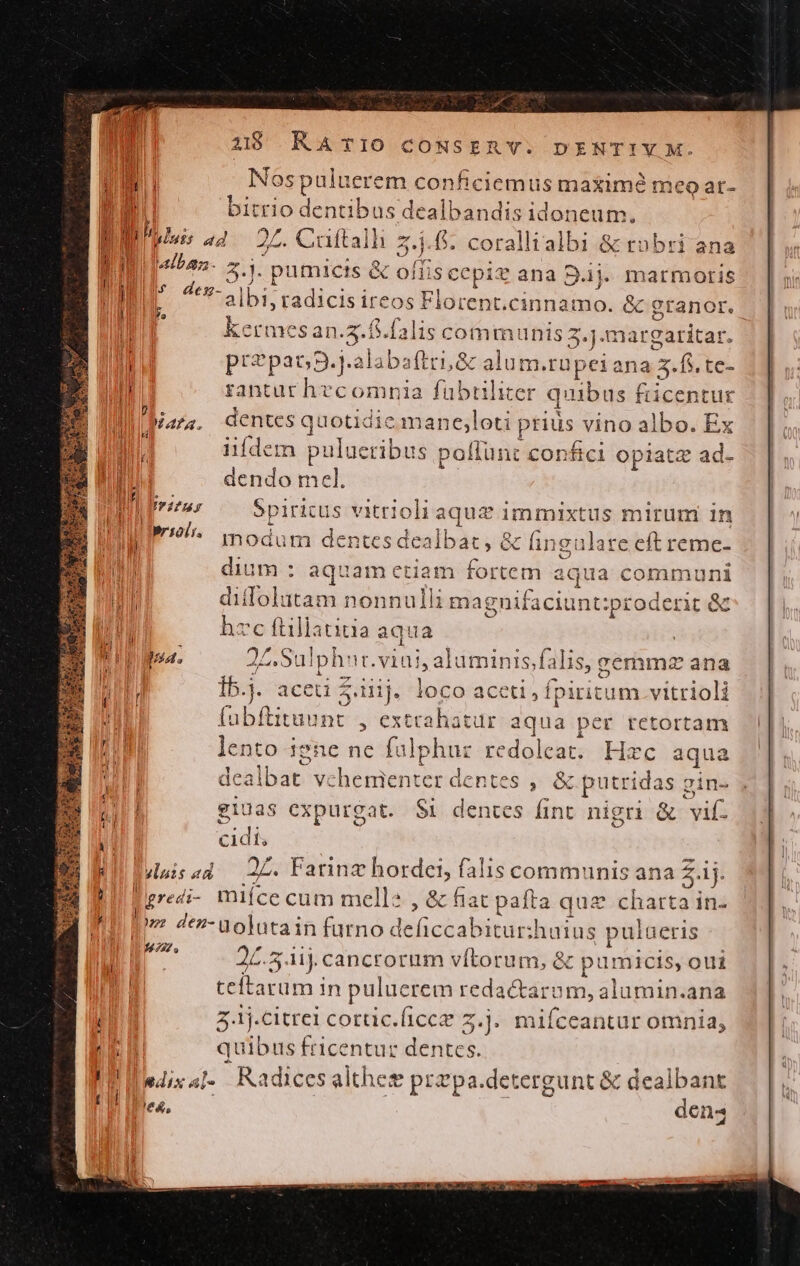 218 RATIO CONSERV. DENTIVM.
Nos puluerem conficiemus maximè meo ar-
bitrio dentibus dealbandis idoneum.
ad ℞. Criſtalli ʒ.j.ß. coralli albi & rubri ana
ʒ.j. pumicis & oſſis cepiæ ana ℈.ij. marmoris
albi, radicis ireos Florent.cinnamo. & granor.
kermes an.ʒ.ß.ſalis communis ʒ.j.margaritar.
præpar,℈.j.alabaſtri,& alum.rupei ana ʒ.ß.te-
rantur hæc omnia ſubtiliter quibus fricentur
dentes quotidie mane,loti priùs vino albo. Ex
iiſdem pulueribus poſſunt confici opiatæ ad-
dendo mel.
Spiritus vitrioli aquæ immixtus mirum in
modum dentes dealbat, & ſingulare eſt reme-
dium : aquam etiam fortem aqua communi
diſſolutam nonnulli magnifaciunt:proderit &
hæc ſtillatitia aqua
℞.Sulphur.viui, aluminis,ſalis, gemmæ ana
℔.j. aceti ℥.iiij. loco aceti, ſpiritum vitrioli
ſubſtituunt , extrahatur aqua per retortam
lento igne ne ſulphur redoleat. Hæc aqua
dealbat vehementer dentes , & putridas gin-
giuas expurgat. Si dentes ſint nigri & viſ-
cidi,
ad ℞. Farinæ hordei, ſalis communis ana ℥.ij.
miſce cum melle , & fiat paſta quæ charta in-
uoluta in furno deſiccabitur:huius pulueris
℞.ʒ.iij.cancrorum vſtorum, & pumicis, oui
teſtarum in puluerem redactarum, alumin.ana
ʒ.ij.citrei cortic.ſiccæ ʒ.j. miſceantur omnia,
quibus fricentur dentes.
Radices altheæ præpa.detergunt & dealbant
den-